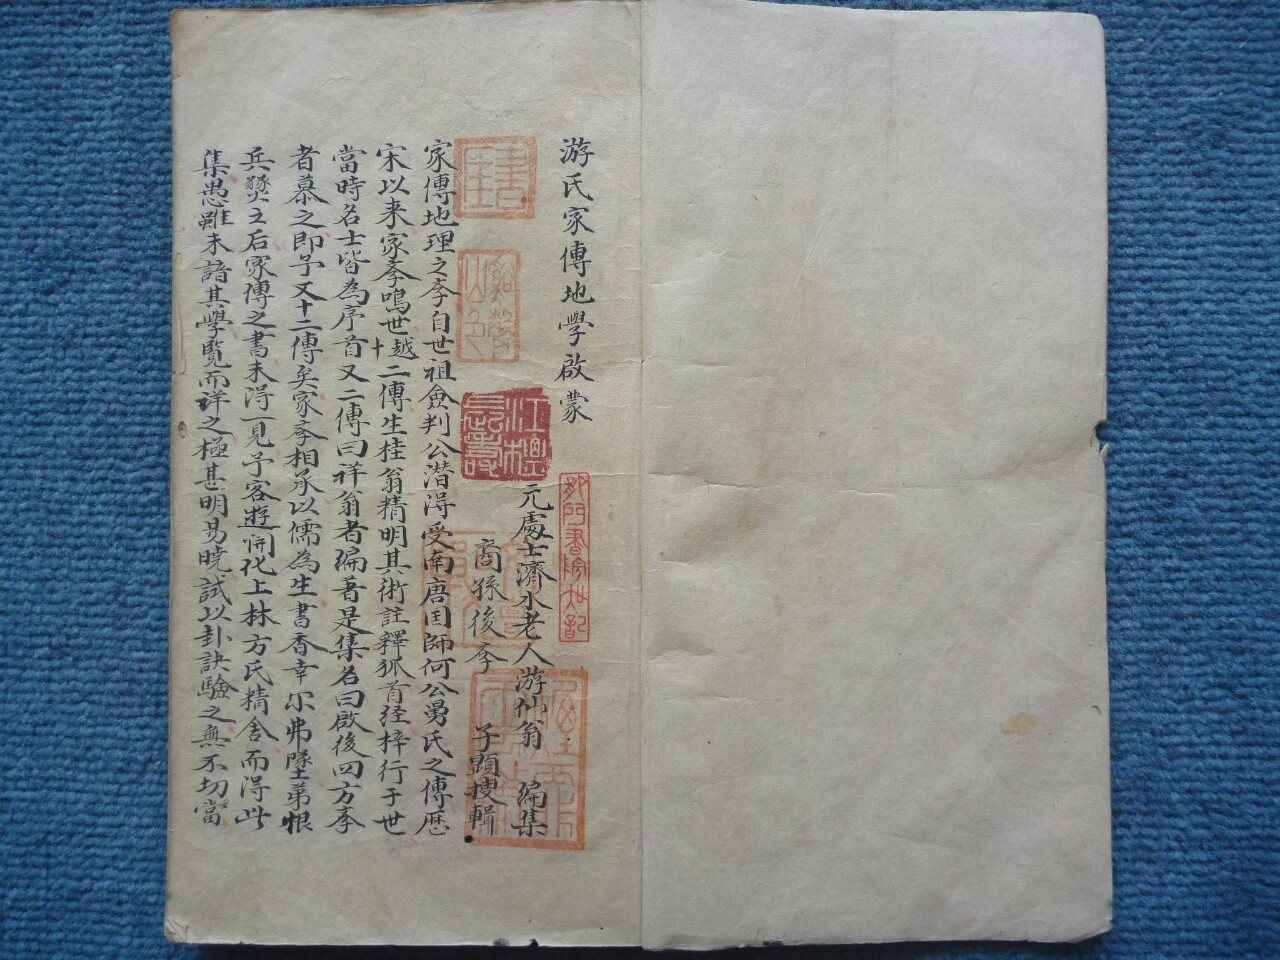 游氏家傳地學啟蒙
元處士濟水老人游仙翁 編集
裔孫後李 子顕搜輯
家傳地理之李自世祖僉判公潜得受南唐囯師何公昜氏之傳歷
宋以来家李鳴世越十二傳生桂翁精明其術註釋狐首经梓行于世
當時名士皆為序首又二傳曰祥翁者编著是集名曰啟後四方李
者慕之即予又十二傳矣家李相承以儒為生書香幸尔弗墜弟恨
兵燹之后家傳之書未淂一見予客逰開化上林方氏精舍而得此
集愚雖未諳其學覧而详之極甚明易曉試以卦訣驗之無不切當